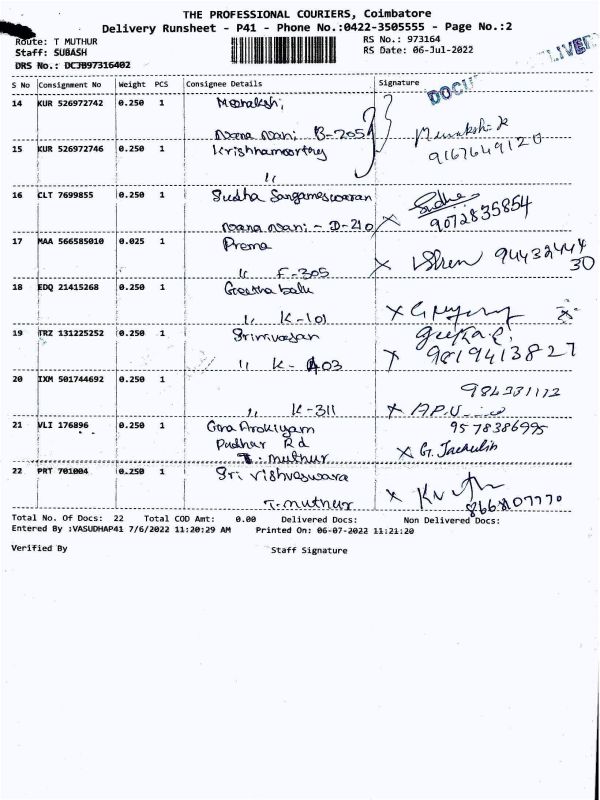 THE PROFESSIONAL COURIERS, Coimbatore
Delivery Runsheet - P41 - Phone No.:0422-3505555 - Page No.:2
Route: T MUTHUR
RS No.: 973164
Staff: SUBASH
RS Date: 06-Jul-2022
DRS No.: DCJB97316402
S No Consignment No Weight PCS Consignee Details Signature
14 KUR 526972742 0.250 1 Meenakshi
Nana Nani B-205
9167649120
15 KUR 526972746 0.250 1 Krishnamoorthy
"
16 CLT 7699855 0.250 1 Sudha Sangameswaran
Nana Nani - D-210 X Sudha
9072835854
17 MAA 566585010 0.025 1 Prema
" F-305 X 94432444
30
18 EDQ 21415268 0.250 1 Geetha balu
" K-101 X
19 TRZ 131225252 0.250 1 Srinivasan
" K-403 X 9819413827
20 IXM 501744692 0.250 1
" K-311 X A.P.V
21 VLI 176896 0.250 1 9578386995
Rd X G. Jackulin
T. muthur
22 PRT 701004 0.250 1 Sri Vishveswara
T. muthur X
8668107770
Total No. Of Docs: 22 Total COD Amt: 0.00 Delivered Docs: Non Delivered Docs:
Entered By :VASUDHAP41 7/6/2022 11:20:29 AM Printed On: 06-07-2022 11:21:20
Verified By Staff Signature